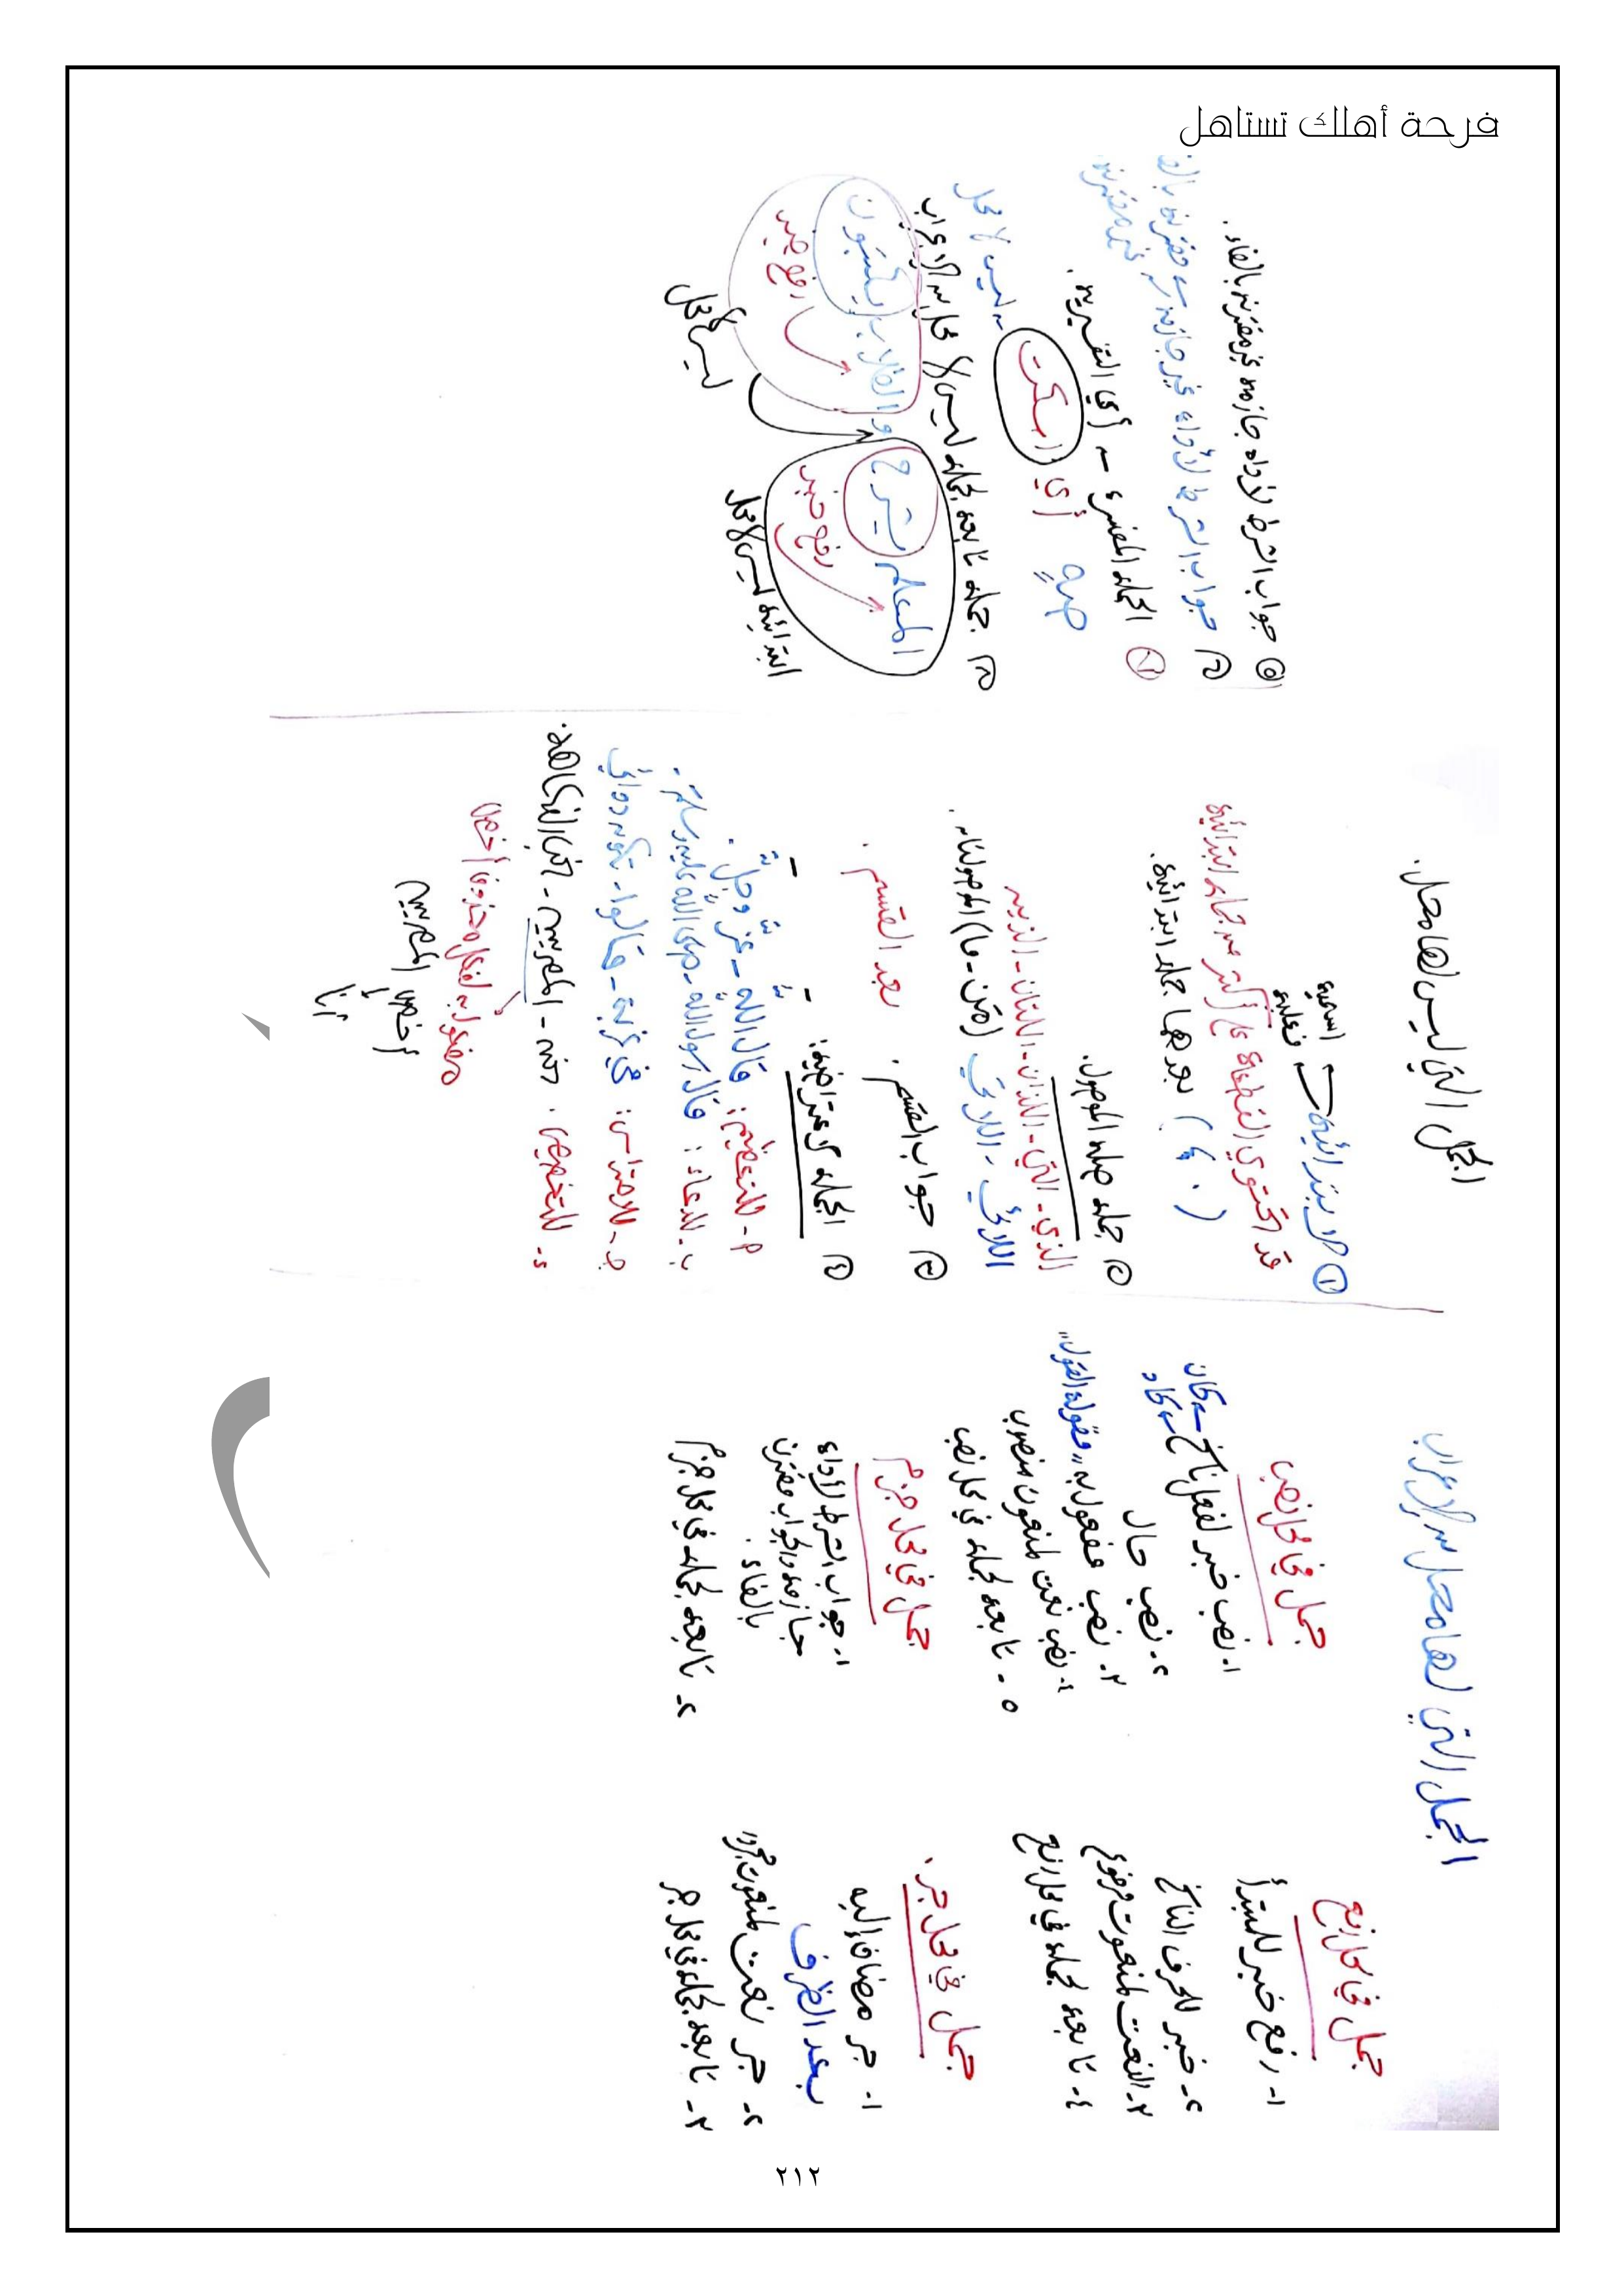 فرحة أهلك تستاهل
الجمل التي لها محل من الإعراب
جمل في محل رفع
١- رفع خبر للمبتدأ
٢- خبر للحرف الناسخ
٣- النعت لمنعوت مرفوع
٤- تابعة لجملة في محل رفع
جمل في محل جر.
١- جر مضاف إليه
بعد الظرف
٢- جر نعت لمنعوت مجرور
٣- تابعة لجملة في محل جر
جمل في محل نصب
١- نصب خبر لفعل ناسخ كان
كاد
٢- نصب حال
٣- نصب مفعول به "مقولة القول"
٤- نصب نعت لمنعوت منصوب
٥- تابعة لجملة في محل نصب
جمل في محل جزم
١- جواب الشرط لأداة
جازمة والجواب مقترن
بالفاء.
٢- تابعة لجملة في محل جزم
الجمل التي ليس لها محل.
① الابتدائية اسمية
فعلية
قد تحتوي القطعة على أكثر من جملة ابتدائية
( . ، ) بعدها جملة ابتدائية.
② جملة صلة الموصول.
الذي - التي - اللذان - اللتان - الذين
اللائي - اللاتي (من - ما) الموصولتان.
③ جواب القسم. بعد القسم.
④ الجملة الاعتراضية:
أ- للتعظيم: قال الله - عز وجل.
ب- للدعاء: قال رسول الله - صلى الله عليه وسلم.
جـ- للاحتراس:
د- للتخصيص: نحن - المصريين -
مفعول به لفعل محذوف أخص
أخص المصريين
أنا
⑤ جواب الشرط لأداة جازمة غير مقترنة بالفاء.
⑥ جواب الشرط لأداة غير جازمة مقترنة بالفاء
غير مقترنة
⑦ الجملة المفسرة - أي التفسيرية.
صهٍ أي اسكت ليس لا محل
⑧ جملة تابعة لجملة ليس لا محل من الإعراب
المعلم يشرح والطلاب يكتبون
رفع خبر رفع خبر
ابتدائية ليس لا محل ليس لا محل
٢١٢